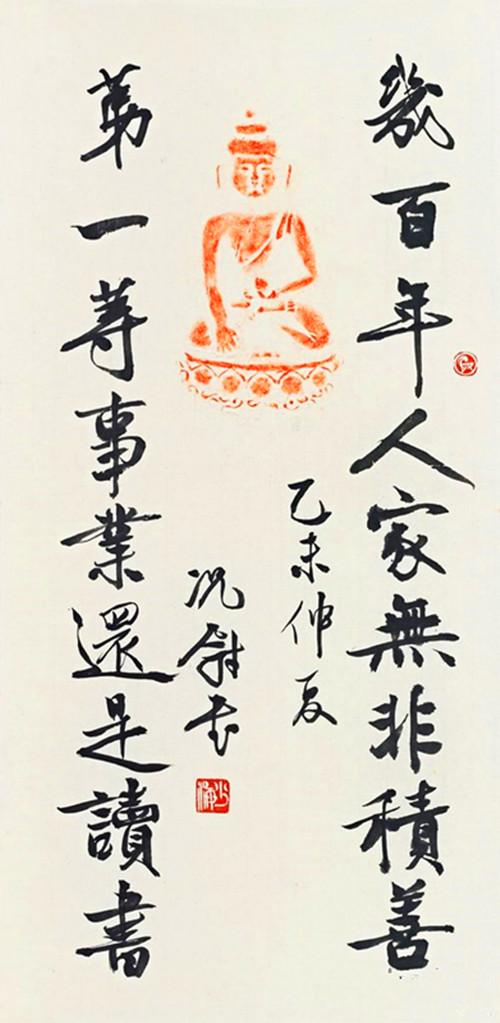 幾百年人家無非積善
乙未仲夏
況尉書
第一等事業還是讀書